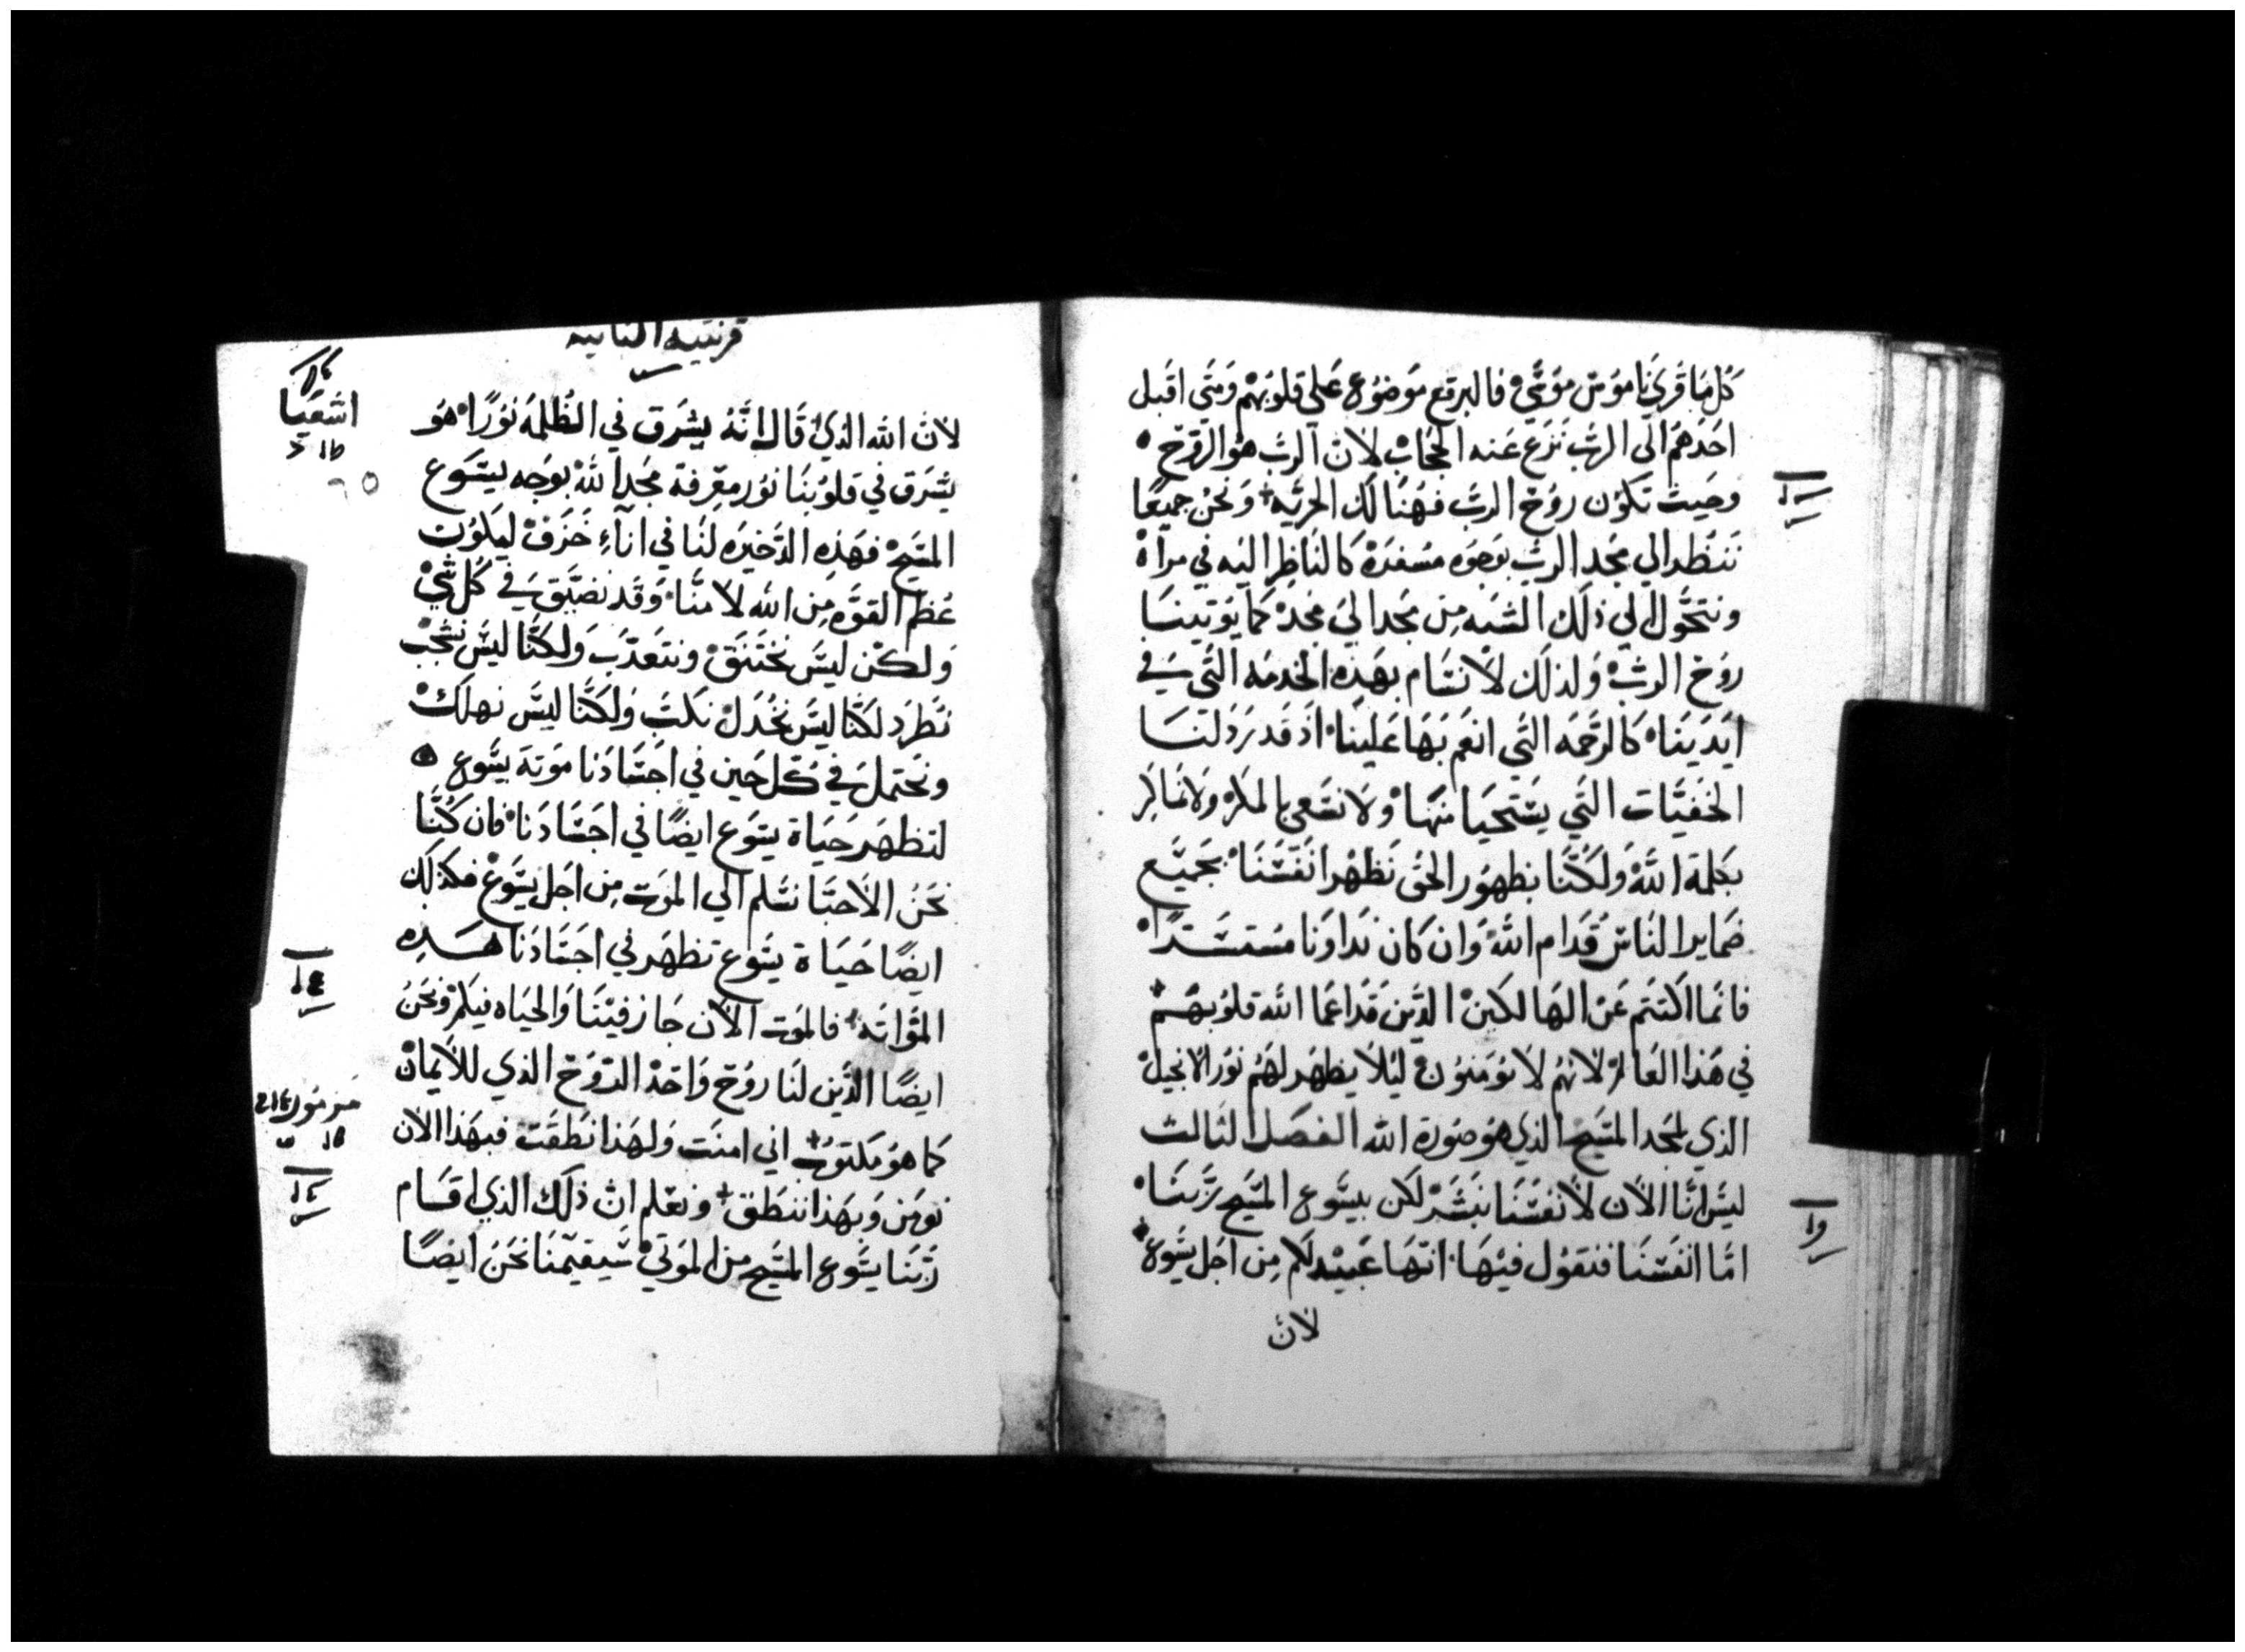 كل ما قري ناموس موسي فالبرقع موضوع علي قلوبهم ومتي اقبل
احدهم الى الرب نزع عنه الحجاب لان الرب هو الروح
وحيث تكون روح الرب فهنالك الحريه ونحن جميعا
ننظر الي مجد الرب بوجوه مسفرة كالناظر اليه في مرآة
ونتحول الي ذلك الشبه من مجد الي مجد كما يوتينا
روح الرب ولذلك لا نسام بهذه الخدمه التي في
ايدينا كالرحمه التي انعم بها علينا اذ قد نرذلنا
الخفيات التي يستحيا منها ولا نسعى بالمكر ولا نماكر
بكلمة الله ولكنا بظهور الحق نظهر انفسنا بجميع
ضماير الناس قدام الله وان كان نداونا مستترا
فانما اكتتم عن الهالكين الذين قد اعما الله قلوبهم
في هذا العالم لانهم لا يومنون ليلا يظهر لهم نور الانجيل
الذي لمجد المسيح الذي هو صورة الله الفصل الثالث
ليس انا الان لانفسنا نبشر لكن بيسوع المسيح ربنا
اما انفسنا فنقول فيها انها عبيد لكم من اجل يسوع
لان
قرنتيه الثانيه
اشعيا
لان الله الذي قال انه يشرق في الظلمه نورا هو
يشرق في قلوبنا نور معرفة مجد الله بوجه يسوع
المسيح فهذه الذخيره لنا في اناء خزف ليكون
عظم القوه من الله لا منا وقد نضيق في كل شي
ولكن ليس نختنق ونتعذب ولكنا ليس نشجب
نطرد لكنا ليس نخذل نكب ولكنا ليس نهلك
ونحتمل في كل حين في اجسادنا موتة يسوع
لتظهر حياة يسوع ايضا في اجسادنا فان كنا
نحن الاحيا نسلم الي الموت من اجل يسوع فكذلك
ايضا حياة يسوع تظهر في اجسادنا هذه
المواته فالموت الان جاز فينا والحياه فيكم ونحن
ايضا الذين لنا روح واحد الروح الذي للايمان
مزمور
كما هو مكتوب اني امنت ولهذا نطقت فبهذا الان
نومن وبهذا ننطق ونعلم ان ذلك الذي اقام
ربنا يسوع المسيح من الموتي سيقيمنا نحن ايضا